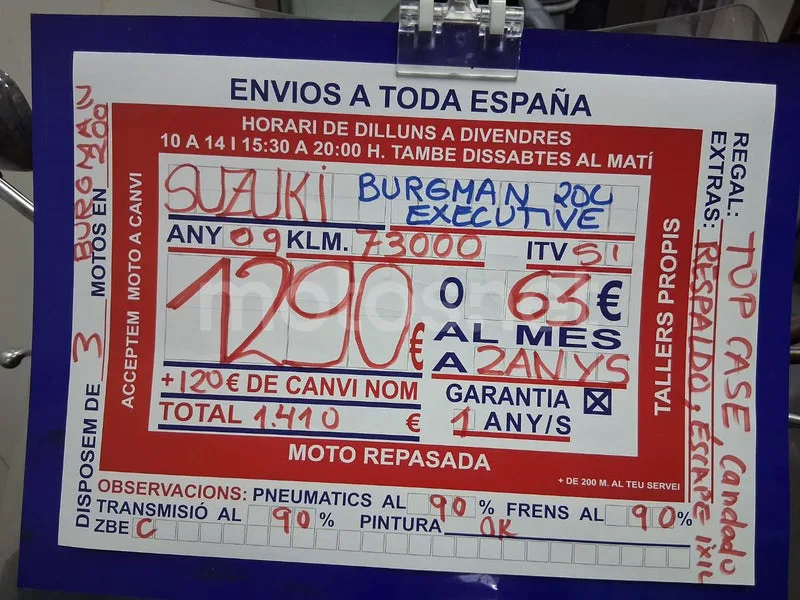 ENVIOS A TODA ESPAÑA
HORARI DE DILLUNS A DIVENDRES
10 A 14 I 15:30 A 20:00 H. TAMBE DISSABTES AL MATÍ
SUZUKI BURGMAN 200
EXECUTIVE
ANY 09 KLM. 73000 ITV SI
1290€ O 63€
AL MES
A 2ANYS
+120€ DE CANVI NOM
TOTAL 1.410 €
GARANTIA
1 ANY/S
MOTO REPASADA
+ DE 200 M. AL TEU SERVEI
ACCEPTEM MOTO A CANVI
TALLERS PROPIS
DISPOSEM DE 3 MOTOS EN BURGMAN 200
REGAL: TOP CASE, Candado
EXTRAS: RESPALDO, ESCAPE IXIL
OBSERVACIONS: PNEUMATICS AL 90% FRENS AL 90%
TRANSMISIÓ AL 90% PINTURA OK
ZBE C
motos.net